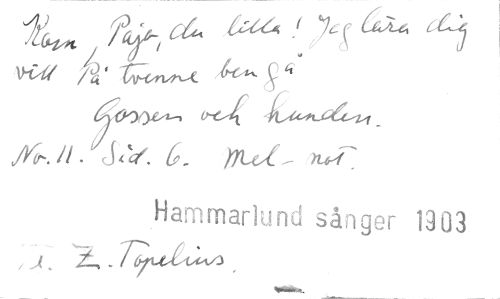 Kom, Pajo, du lilla! Jag lära dig
vill På tvenne ben gå
Gossen och hunden.
No. 11. Sid. 6. Mel-not.
Hammarlund sånger 1903
Z. Topelius.